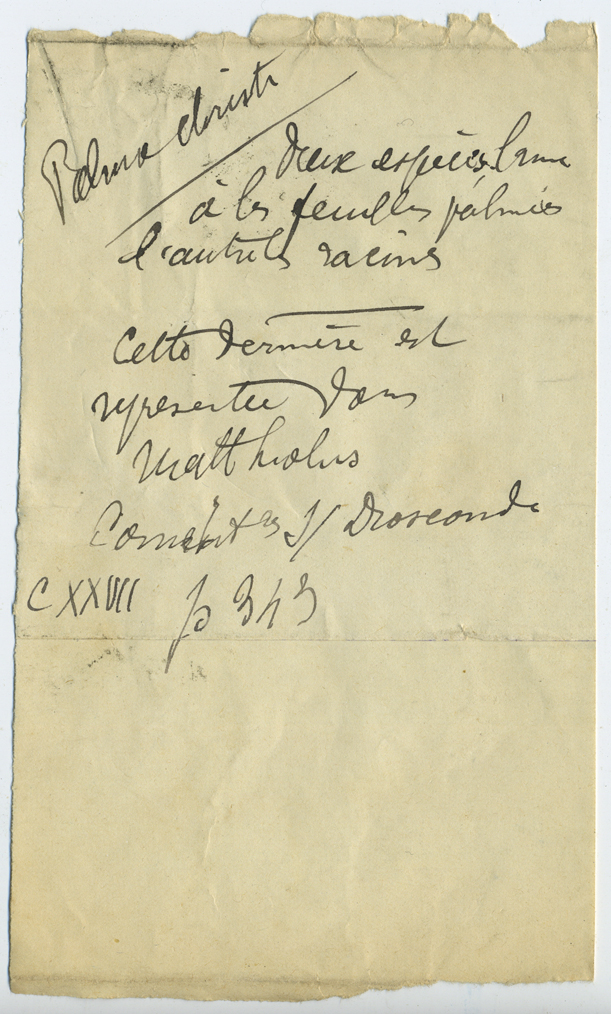 Palma christi
deux espèces l'une
à les feuilles palmées
l'autre les racines
Cette dernière est
representée dans
Matthiolus
Coment res s/ Dioscoride
C XXVIII p 343